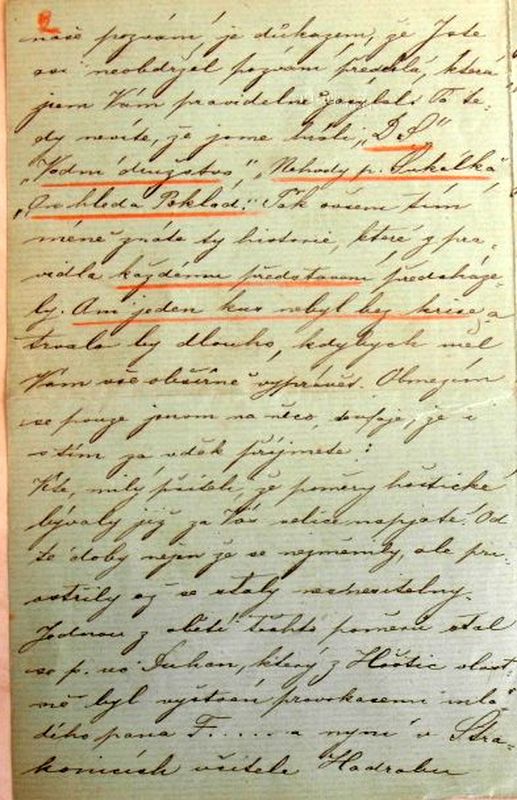 2
naše pozvání je důkazem, že Jste
asi neobdržel pozvání předešlá, která
jsem Vám pravidelně zasýlal. To te-
dy nevíte, že jsme hráli „D. S.“
„Vodní družstvo“, „Nehody p. Sukálka“
„On hledá Poklad.“ Pak ovšem tím
méně znáte ty historie, které z pra-
vidla každému představení předcháze-
ly. Ani jeden kus nebyl bez krise, a
trvalo by dlouho, kdybych měl
Vám vše obšírně vyprávět. Obmezím
se pouze jenom na něco, doufaje, že i
s tím za vděk přijmete:
Víte, milý příteli, že poměry hoštické
bývaly již za Vás velice napjaté. Od
té doby nejen že se nezměnily, ale při-
ostřily až se staly nesnesitelny.
Jednou z obětí těchto poměrů stal
se p. uč. Duhan, který z Hoštic vlast-
ně byl vyštván provokacemi mla-
dého pana F..... a nyní v Stra-
konicích učitele Hodrabu